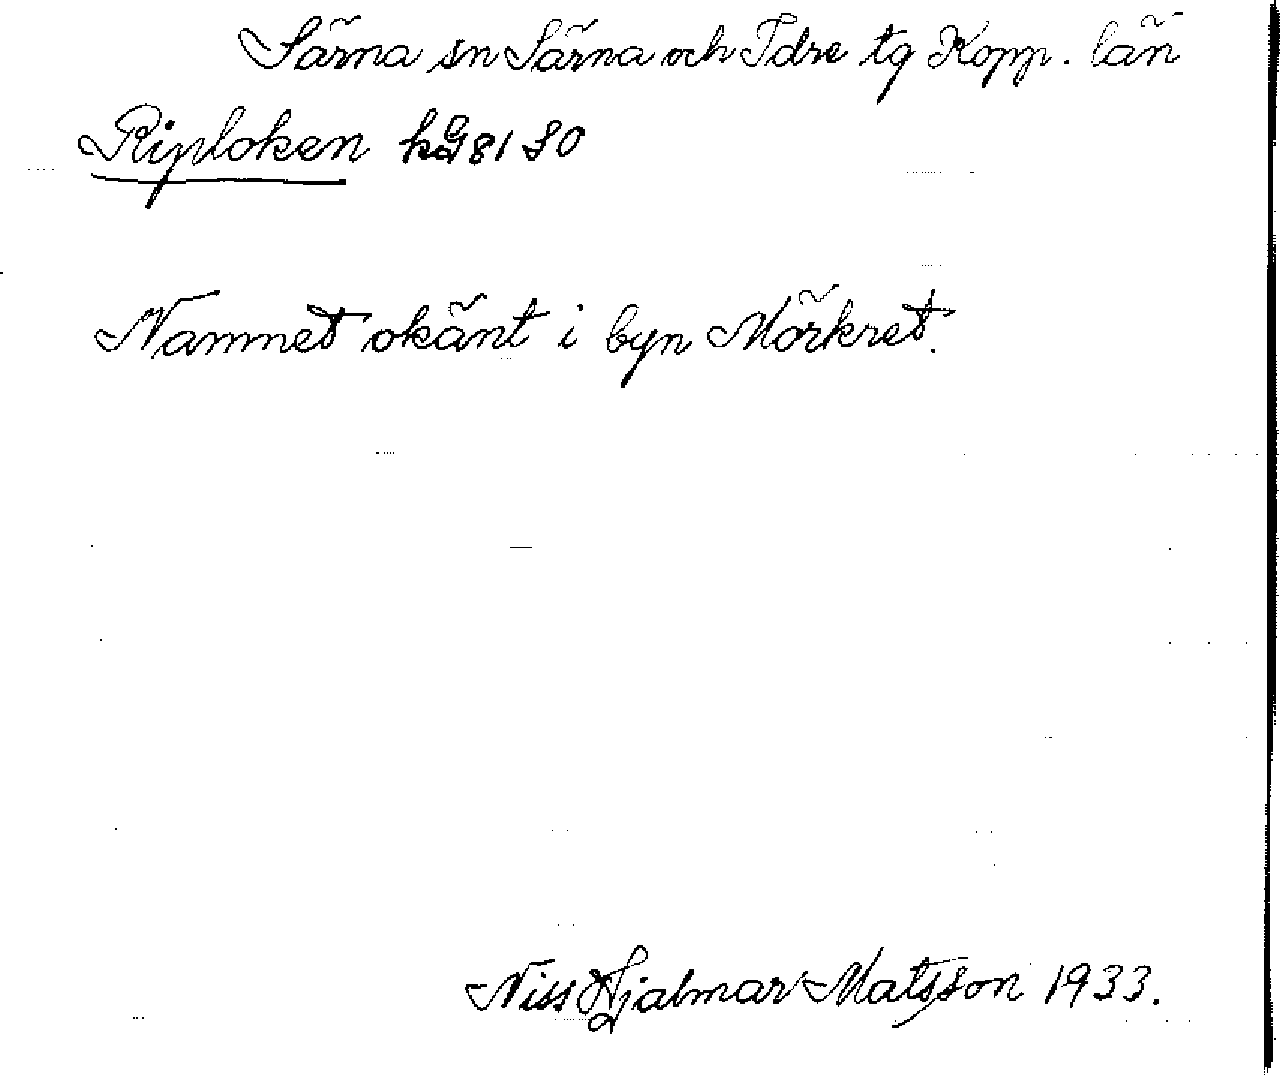 Särna sn Särna och Idre tg Kopp. län
Riploken kG 81 SO
Namnet okänt i byn Mörkret.
Niss Hjalmar Matsson 1933.